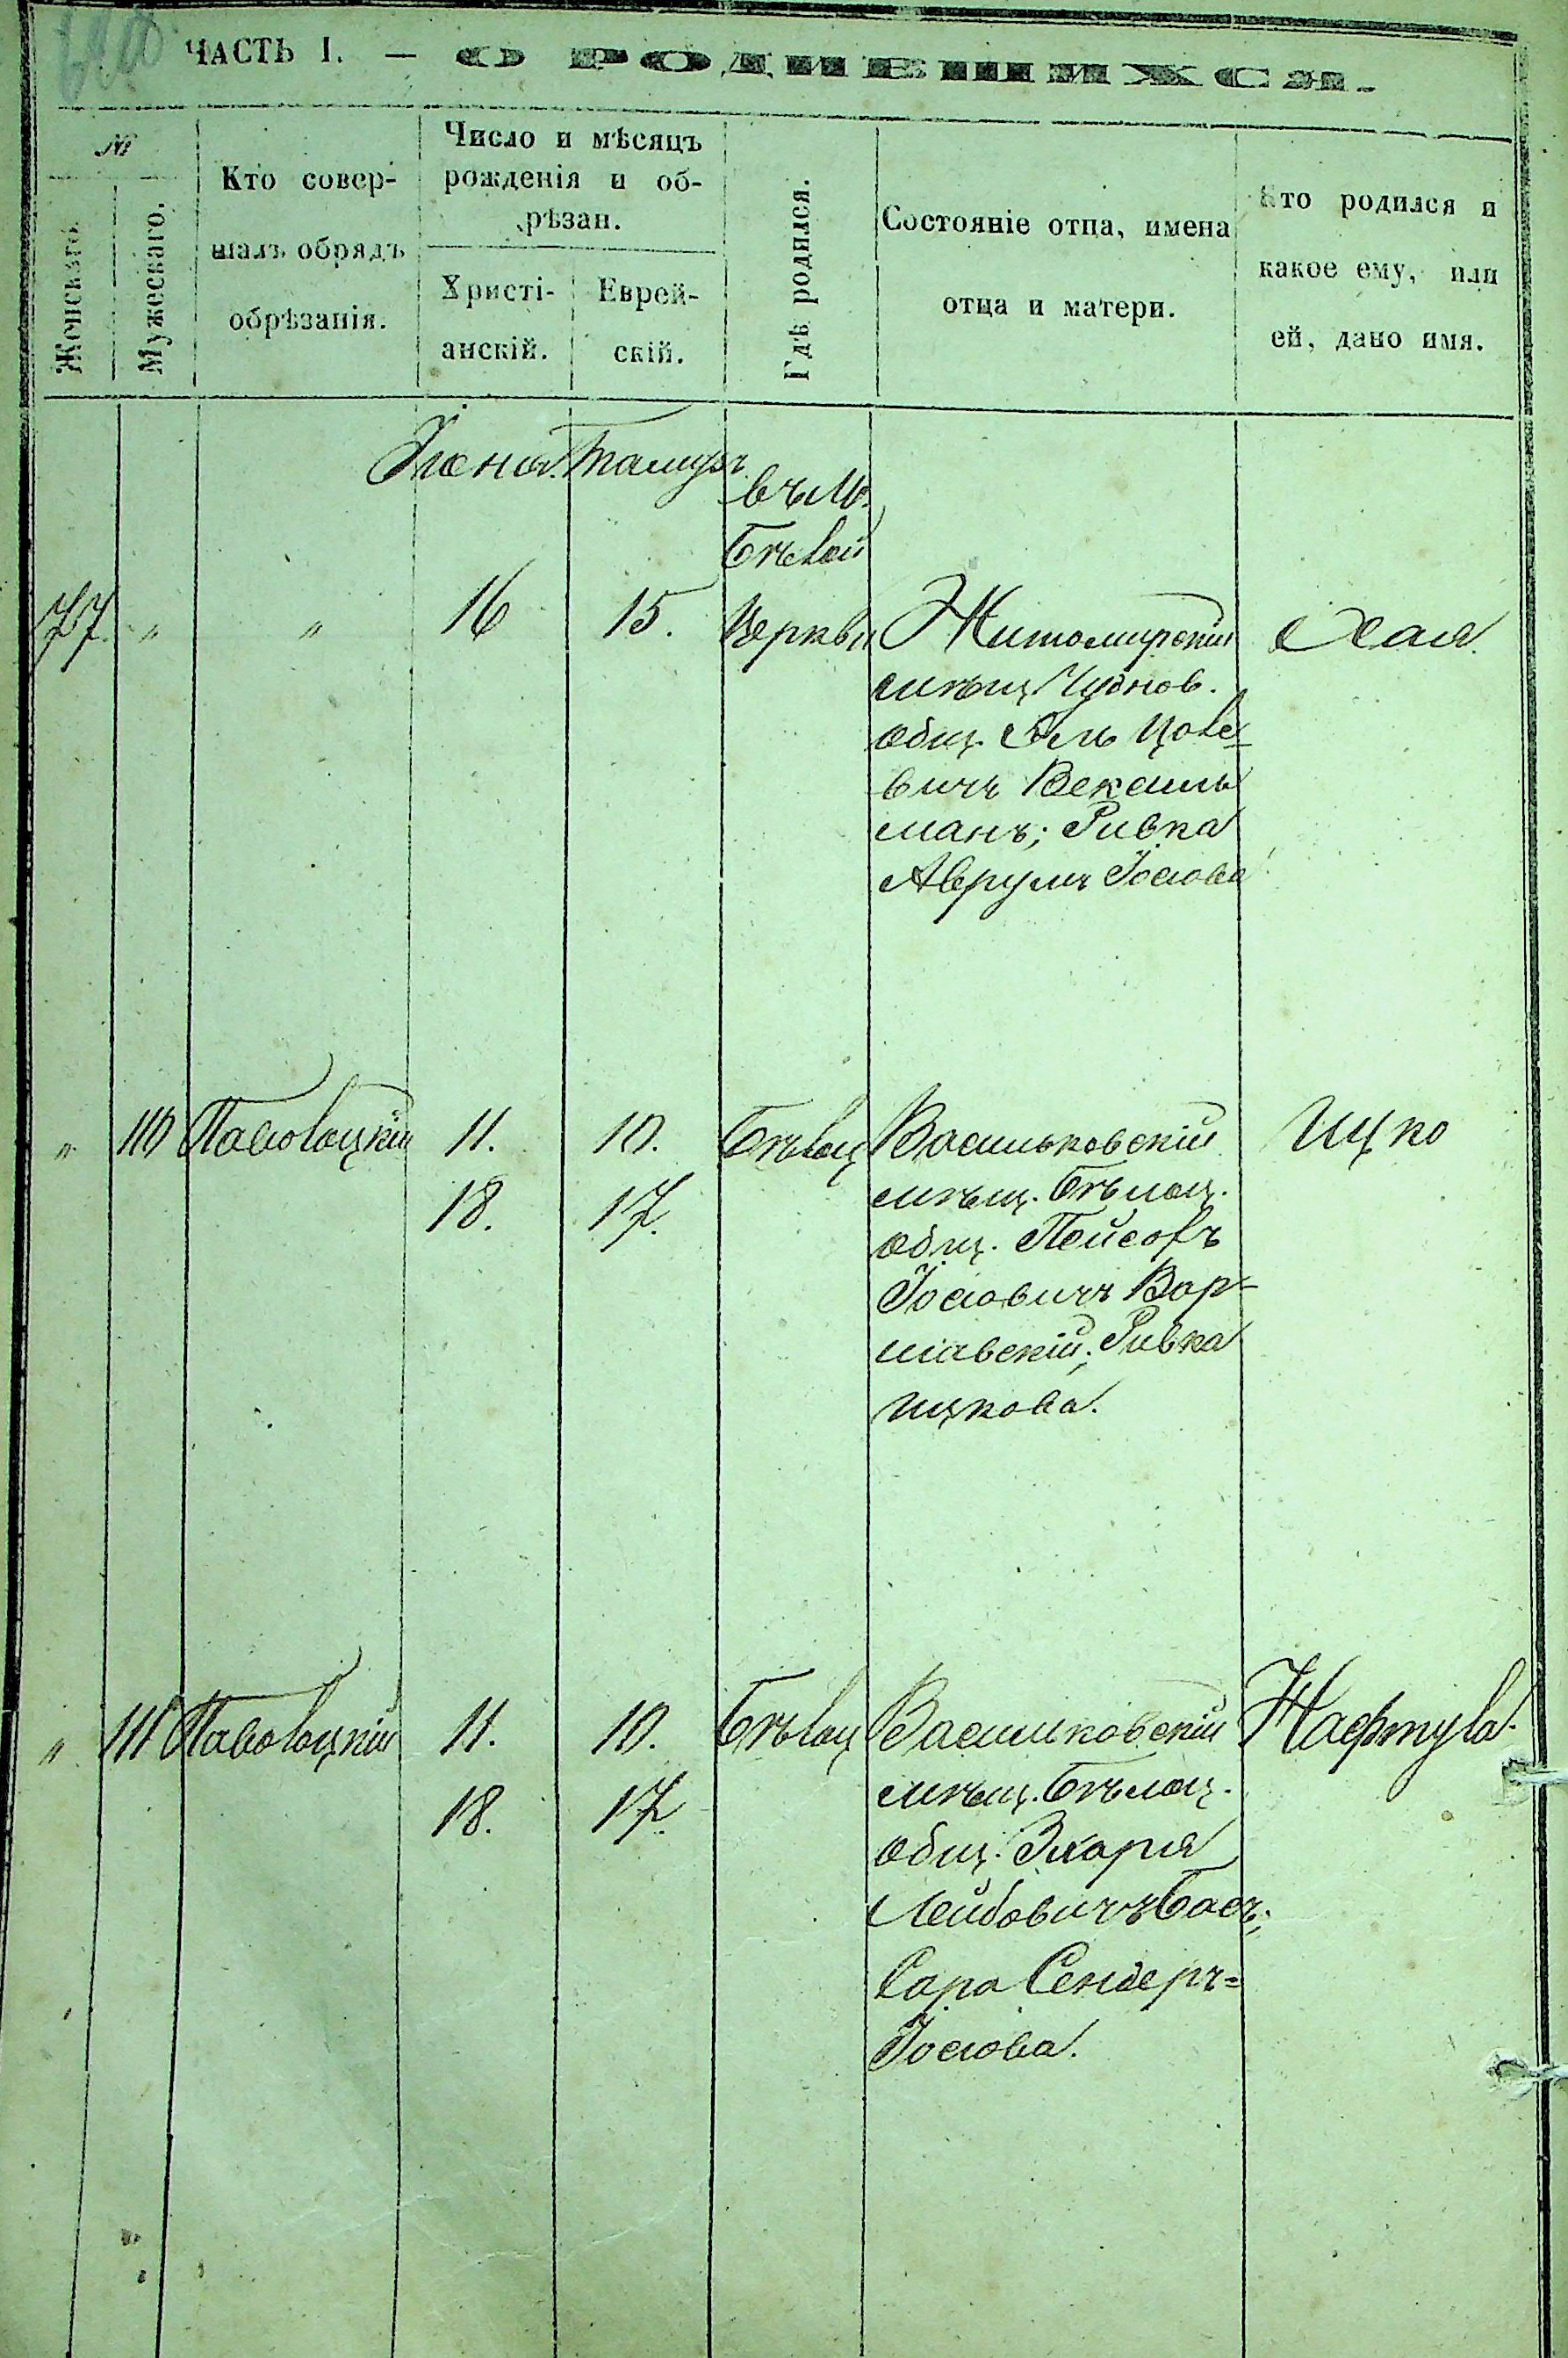 ЧАСТЬ I. — О РОДИВШИХСЯ.
№
Женскаго.
Мужескаго.
Кто совер-
шалъ обрядъ
обрѣзанія.
Число и мѣсяцъ
рожденія и об-
рѣзан.
Христі-
анскій.
Еврей-
скій.
Гдѣ родился.
Состояніе отца, имена
отца и матери.
Кто родился и
какое ему, или
ей, дано имя.
Іюня. Тамузъ
въ М.
Бѣлой
77 " " 16 15. Церкви Житомирскій Хая.
мѣщ. Чуднов.
общ. Эль
вичъ Вексель
манъ; Ривка
Аврумъ Іосіова
" 110 Паволоцкій 11. 10. Бѣлоц Васильковскій Ицко
18. 17. мѣщ. Бѣлоц.
общ. Пейсахъ
Іосіовичъ Вар-
шавскій; Ривка
Ицкова.
" 111 Паволоцкій 11. 10. Бѣлоц Васильковскій Нафтула.
18. 17. мѣщ. Бѣлоц.
общ. Зхарія
Лейбовичъ Басъ;
Сара Сендеръ=
Іосіова.